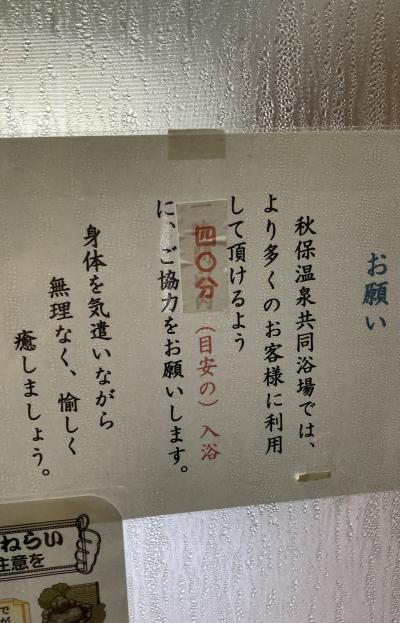 お願い
秋保温泉共同浴場では、
より多くのお客様に利用
して頂けるよう
四〇分（目安の）入浴
に、ご協力をお願いします。
身体を気遣いながら
無理なく、愉しく
癒しましょう。
ねらい
注意を